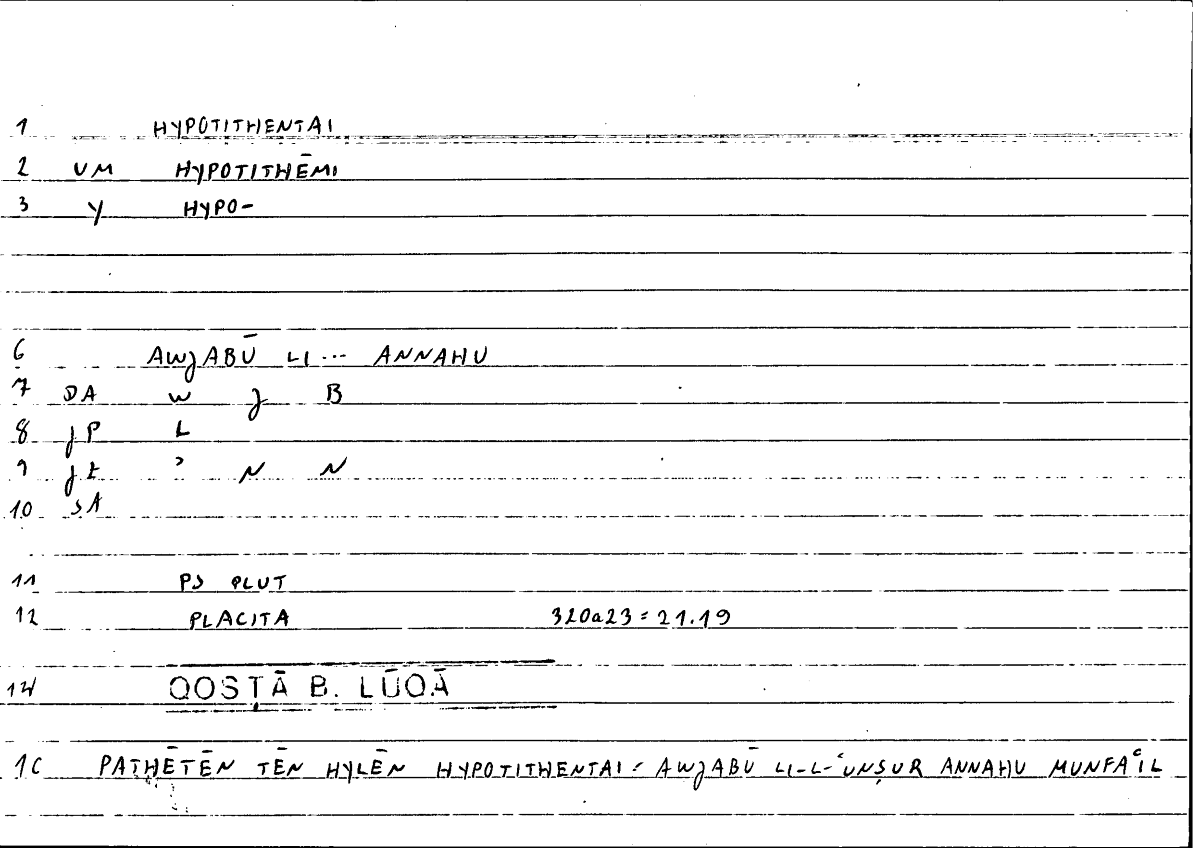 1 HYPOTITHENTAI
2 VM HYPOTITHĒMI
3 Y HYPO-
6 AWJABŪ LI... ANNAHU
7 DA W J B
8 JP L
9 JŁ ʾ N N
10 SA
11 PS PLUT
12 PLACITA 320a23 = 21.19
14 QOSṬĀ B. LŪQĀ
16 PATHĒTĒN TĒN HYLĒN HYPOTITHENTAI = AWJABŪ LI-L-ʿUNṢUR ANNAHU MUNFAʿIL